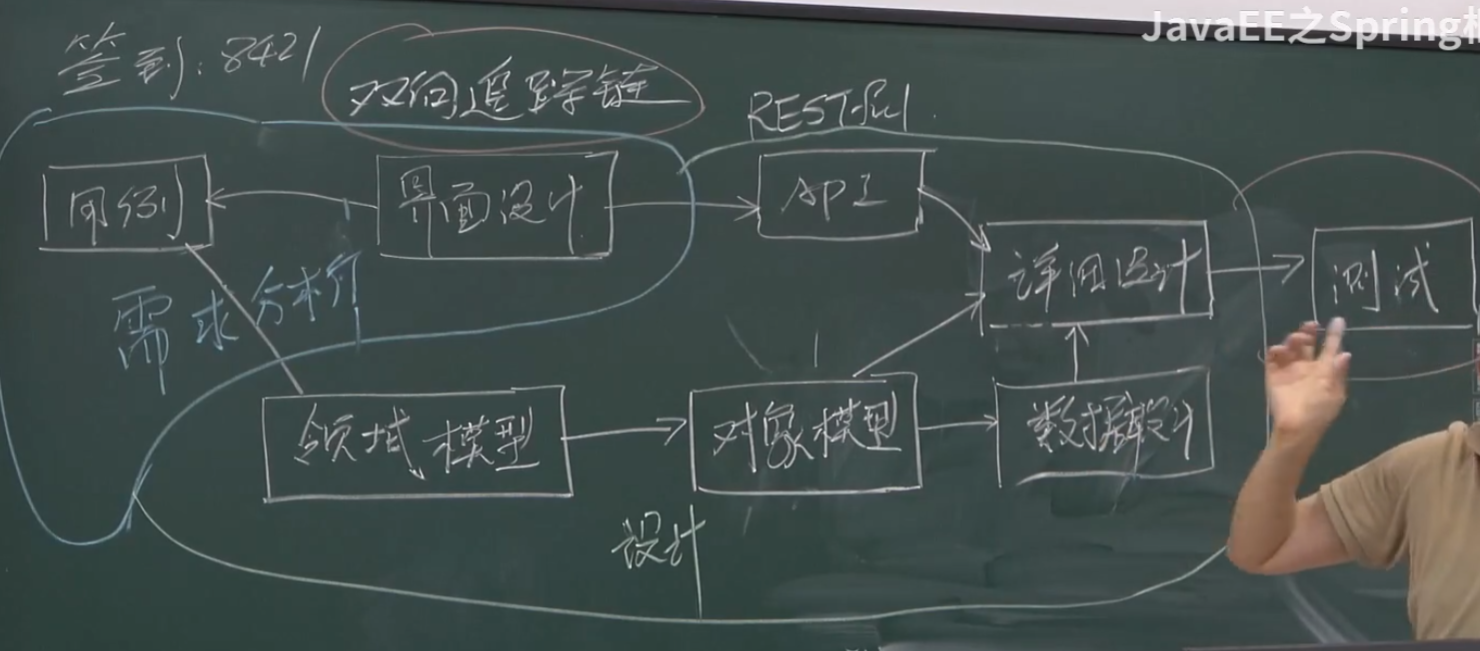 JavaEE之Spring
签到: 8421
双向追踪链
RESTful
用例
界面设计
API
详细设计
测试
需求分析
领域模型
对象模型
数据设计
设计